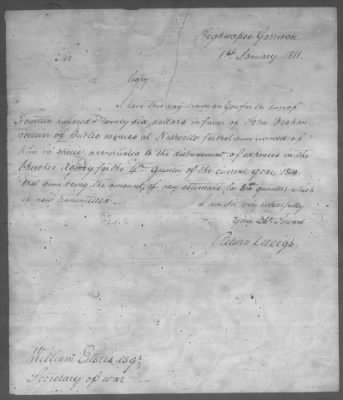 Highwassee Garrison
1st January 1811.
Sir
Copy
I have this day drawn on You for the sum of
fourteen hundred & twenty six dollars in favor of John Brahan
receiver of Public monies at Nashville for that sum received of
him in specie appropriated to the disbursement of expences in the
Cherokee Agency for the 4th Quarter of the current year, 1810
that sum being the amount of my estimate for the quarter which
is now transmitted.
I am Sir very respectfully
Your Obt Servant
Return J. Meigs
William Eustis esqr
Secretary of war